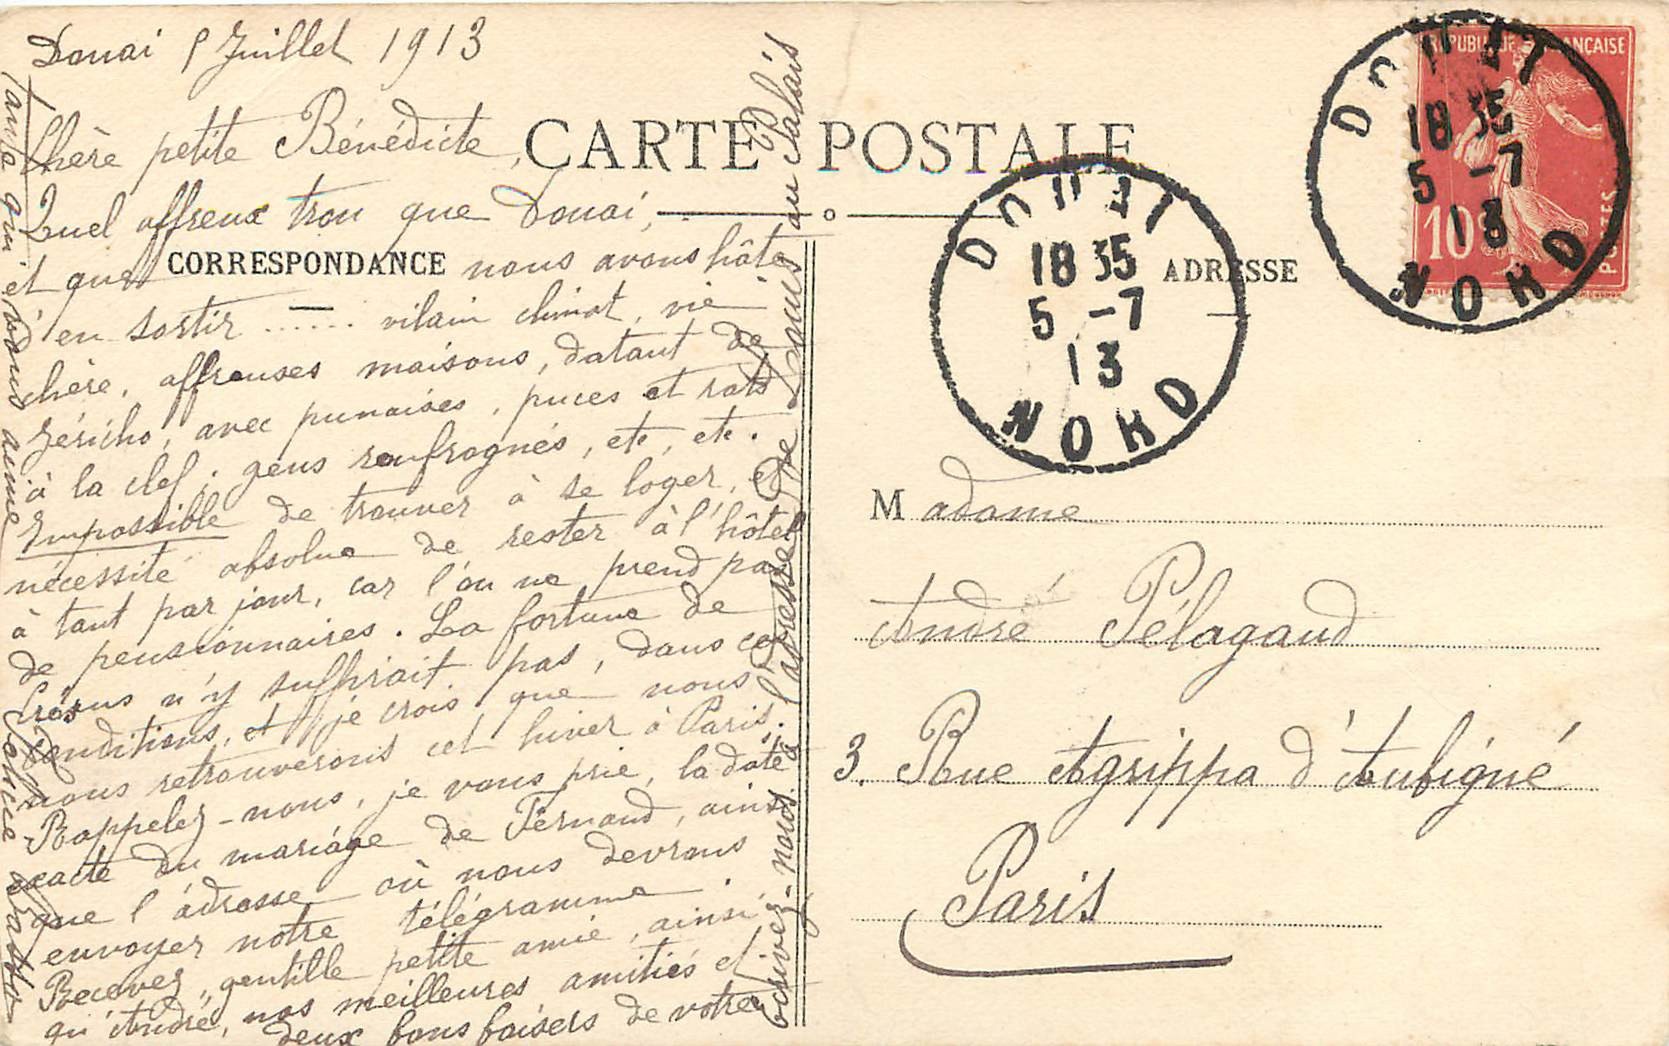 Douai 5 Juillet 1913
Chère petite Bénédicte,
Quel affreux trou que Douai,
et que nous avons hâte
d'en sortir ...... vilain climat, vie
chère, affreuses maisons, datant de
Jéricho, avec punaises, puces et rats
à la clef; gens renfrognés, etc, etc.
Impossible de trouver à se loger, et
nécessité absolue de rester à l'hôtel
à tant par jour, car l'on ne prend pas
de pensionnaires. La fortune de
Crésus n'y suffirait pas, dans ces
conditions, et je crois que nous
nous retrouverons cet hiver à Paris.
Rappelez-nous, je vous prie, la date
exacte du mariage de Fernand, ainsi
que l'adresse où nous devrons
envoyer notre télégramme
Recevez, gentille petite amie, ainsi
qu'André, nos meilleures amitiés et
deux bons baisers de votre
tante qui vous aime
Ecrivez-nous à l'adresse de Louis au Palais
CARTE POSTALE
CORRESPONDANCE
ADRESSE
RÉPUBLIQUE FRANÇAISE
10c
POSTES
DOUAI
18 35
5 -7
13
NORD
DOUAI
18 35
5 -7
13
NORD
Madame
André Pélagaud
3. Rue Agrippa d'Aubigné
Paris